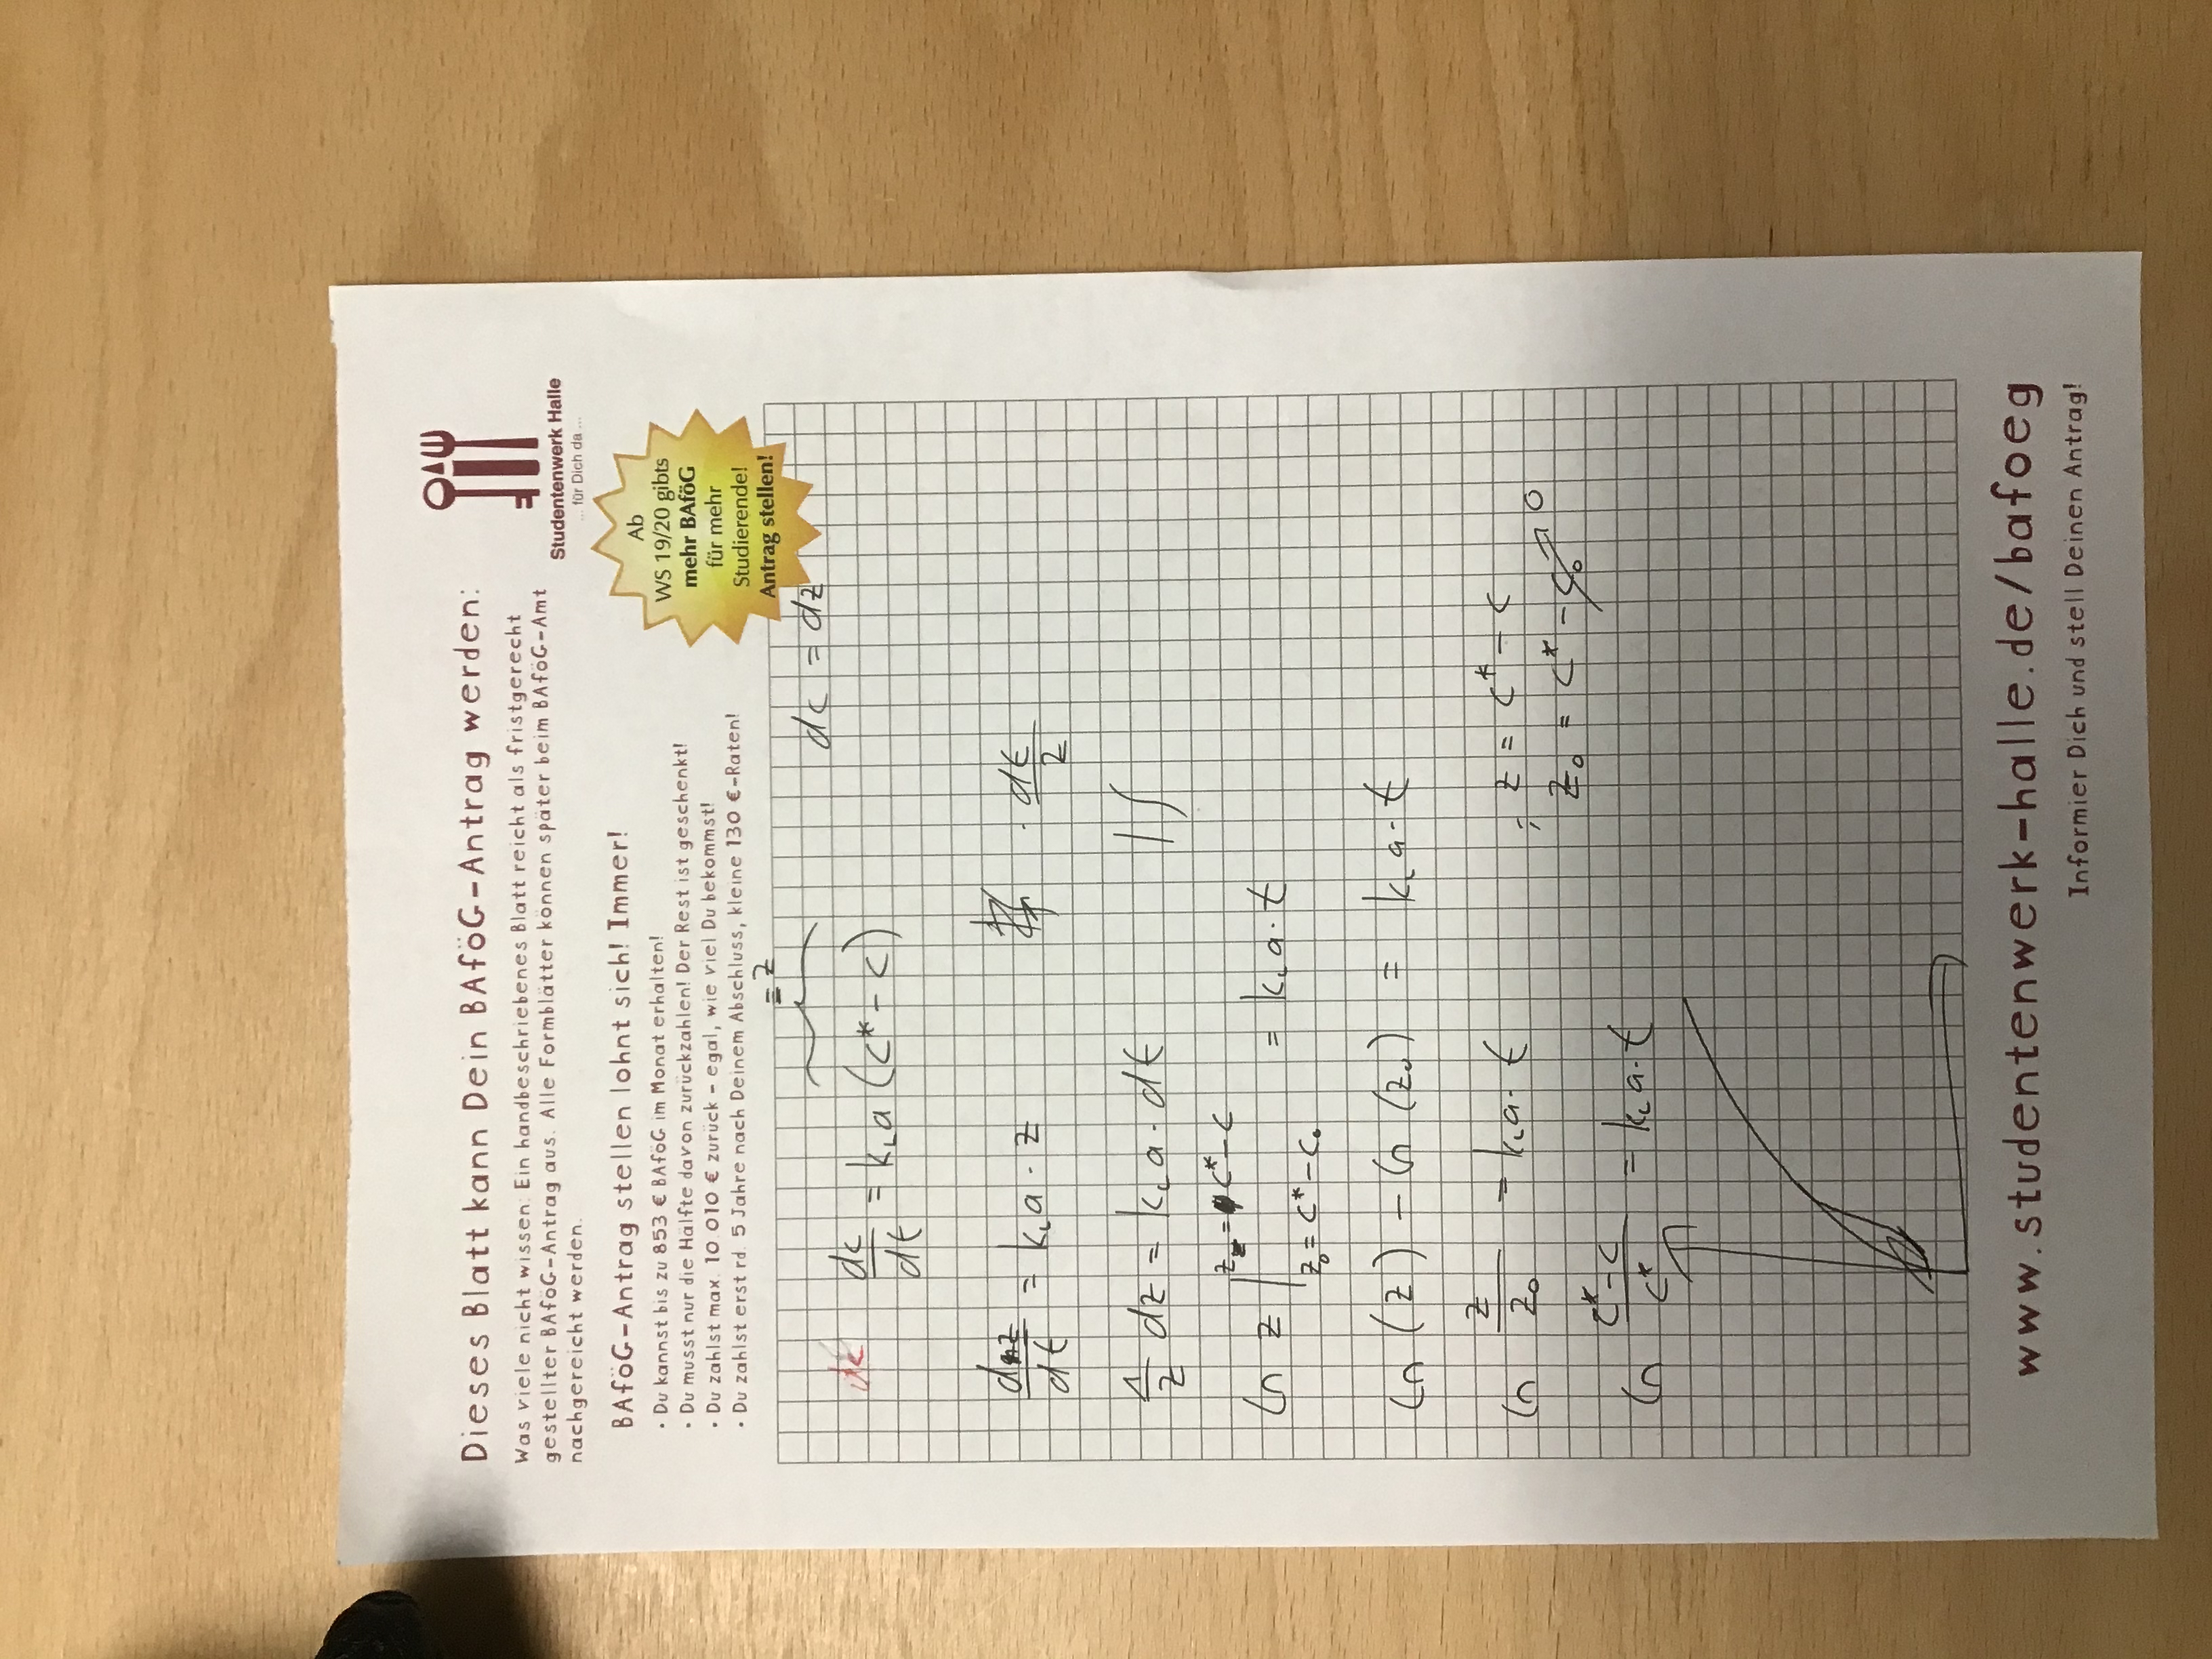 Dieses Blatt kann Dein BAföG-Antrag werden:
Was viele nicht wissen: Ein handbeschriebenes Blatt reicht als fristgerecht
gestellter BAföG-Antrag aus. Alle Formblätter können später beim BAföG-Amt
nachgereicht werden.
Studentenwerk Halle
... für Dich da ...
BAföG-Antrag stellen lohnt sich! Immer!
• Du kannst bis zu 853 € BAföG im Monat erhalten!
• Du musst nur die Hälfte davon zurückzahlen! Der Rest ist geschenkt!
• Du zahlst max. 10.010 € zurück – egal, wie viel Du bekommst!
• Du zahlst erst rd. 5 Jahre nach Deinem Abschluss, kleine 130 €-Raten!
Ab
WS 19/20 gibts
mehr BAföG
für mehr
Studierende!
Antrag stellen!
= z
dc = dz
dc/dt = kLa (c* - c)
dz/dt = kLa · z · dt/z
1/z dz = kLa · dt | ∫
ln z | z = c* - c
z₀ = c* - c₀ = kLa · t
ln (z) - ln (z₀) = kLa · t
ln z/z₀ = kLa · t ; z = c* - c
z₀ = c* - c₀ 0
ln c* - c/c* = kLa · t
www.studentenwerk-halle.de/bafoeg
Informier Dich und stell Deinen Antrag!